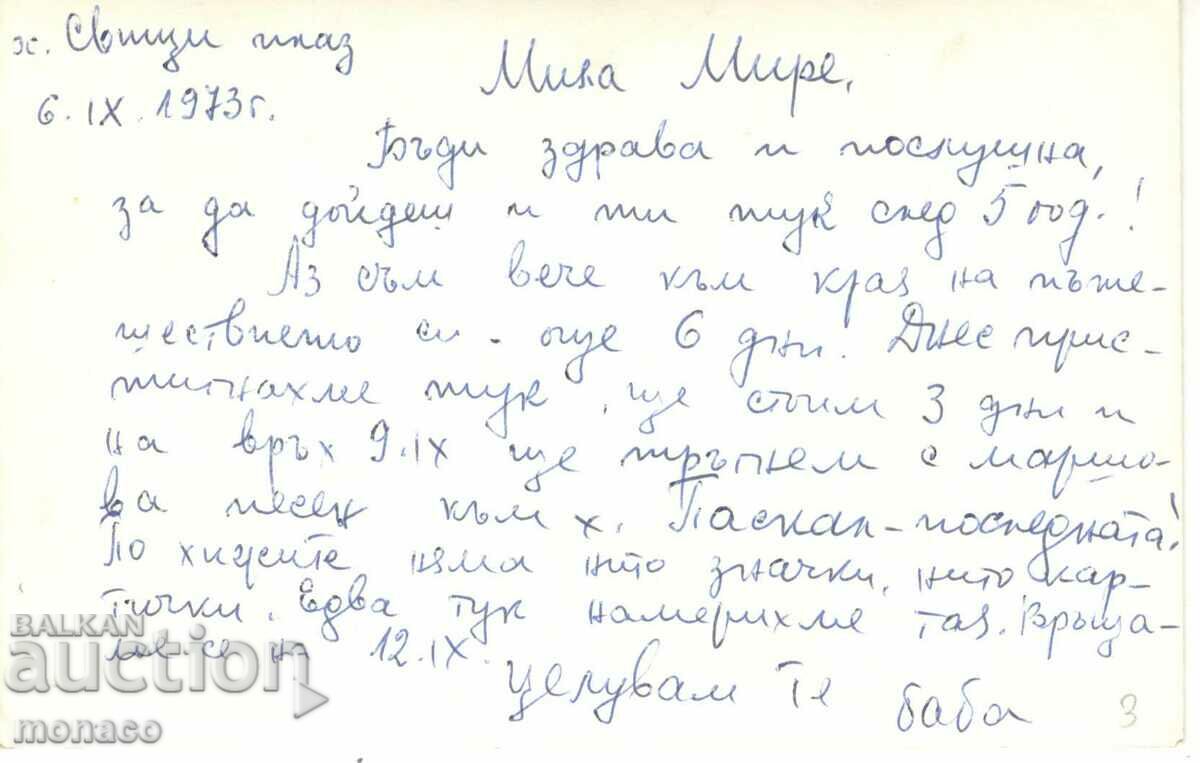 х. Свищи плаз
6. IX. 1973 г.
Мила Мире,
Бъди здрава и послушна,
за да дойдеш и ти тук след 5 год.!
Аз съм вече към края на пъте-
шествието си - още 6 дни. Днес прис-
тигнахме тук, ще стоим 3 дни и
на връх 9.IX ще тръгнем с маршо-
ва песен към х. Паскал - последната!
По хижите няма нито значки, нито кар-
тички. Едва тук намерихме таз. Връща-
ме се на 12.IX.
Целувам те
баба
3
BALKAN
auction
monaco